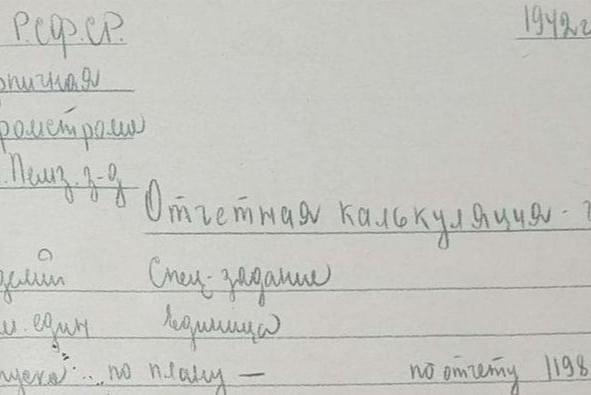 Р.СФ.СР. 1942 г
пичная
рометроля
Пемз. з-д
Отчетная калькуляция -
делий Спец-задание
м. един Единица
пуска по плану — по отчету 1198